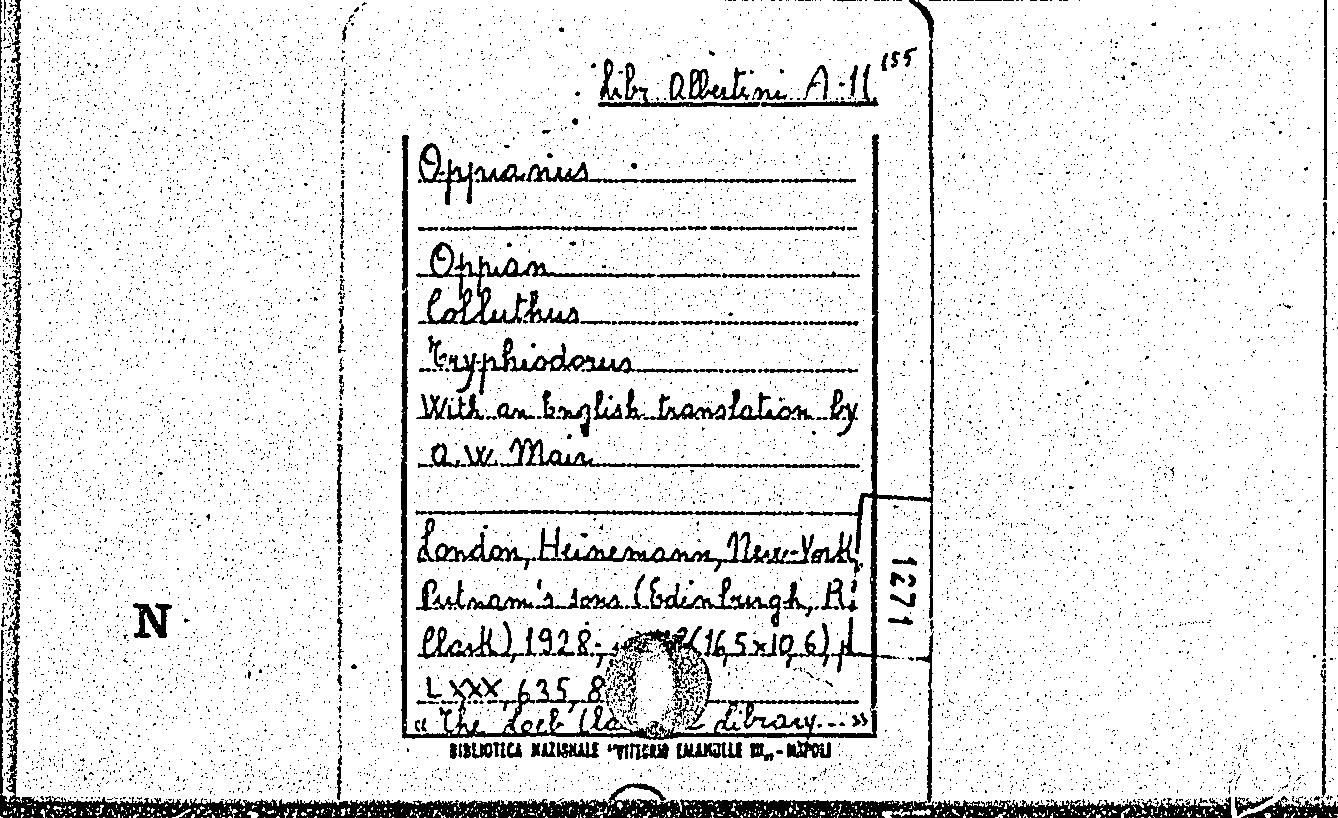 155
Libr Albertini A-11
Oppianus
Oppian
Colluthus
Tryphiodorus
With an English translation by
A. W. Mair
London, Heinemann, New-York,
Putnam's sons (Edinburgh, R.
Clark), 1928, (16,5x10,6), p
LXXX, 635, 8
« The Loeb Library... »
BIBLIOTECA NAZIONALE "VITTORIO EMANUELE III„ - NAPOLI
1271
N